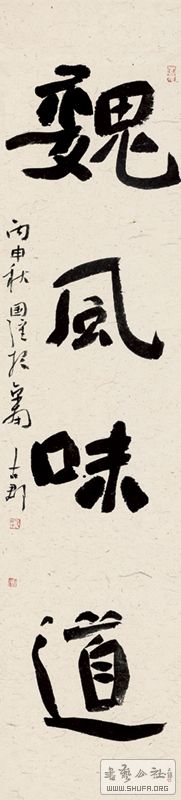 魏風味道
丙申秋国於古郡
书艺公社
WWW.SHUFA.ORG